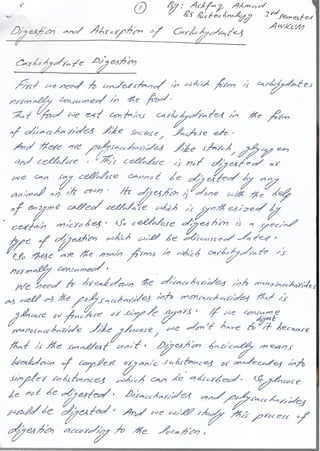 ① By: Ashfaq Ahmad
BS Biotechnology 3rd semester
AWKUM
Digestion and Absorption of Carbohydrates
Carbohydrate Digestion
First we need to understand in which form is carbohydrates
normally consumed in the food.
That food we eat contains carbohydrates in the form
of disaccharides like sucrose, lactose etc.
And there are polysaccharides like starch, glycogen
and cellulose. This cellulose is not digested or
we can say cellulose cannot be digested by any
animal on its own. Its digestion is done with the help
of enzyme called cellulase which is synthesized by
certain microbes. So cellulose digestion is a special
type of digestion which will be discussed later.
So these are the main forms in which carbohydrate is
normally consumed.
We need to breakdown the disaccharides into monosaccharides
as well as the polysaccharides into monosaccharides that is
glucose or fructose or simple sugars. If we consume
monosaccharide like glucose, we don't have to digest it because
that is the smallest unit. Digestion basically means
breakdown of complex organic substances or molecules into
simpler substances which can be absorbed. So glucose
be not be digested. Disaccharides and polysaccharides
would be digested. And we will study this process of
digestion according to the location.